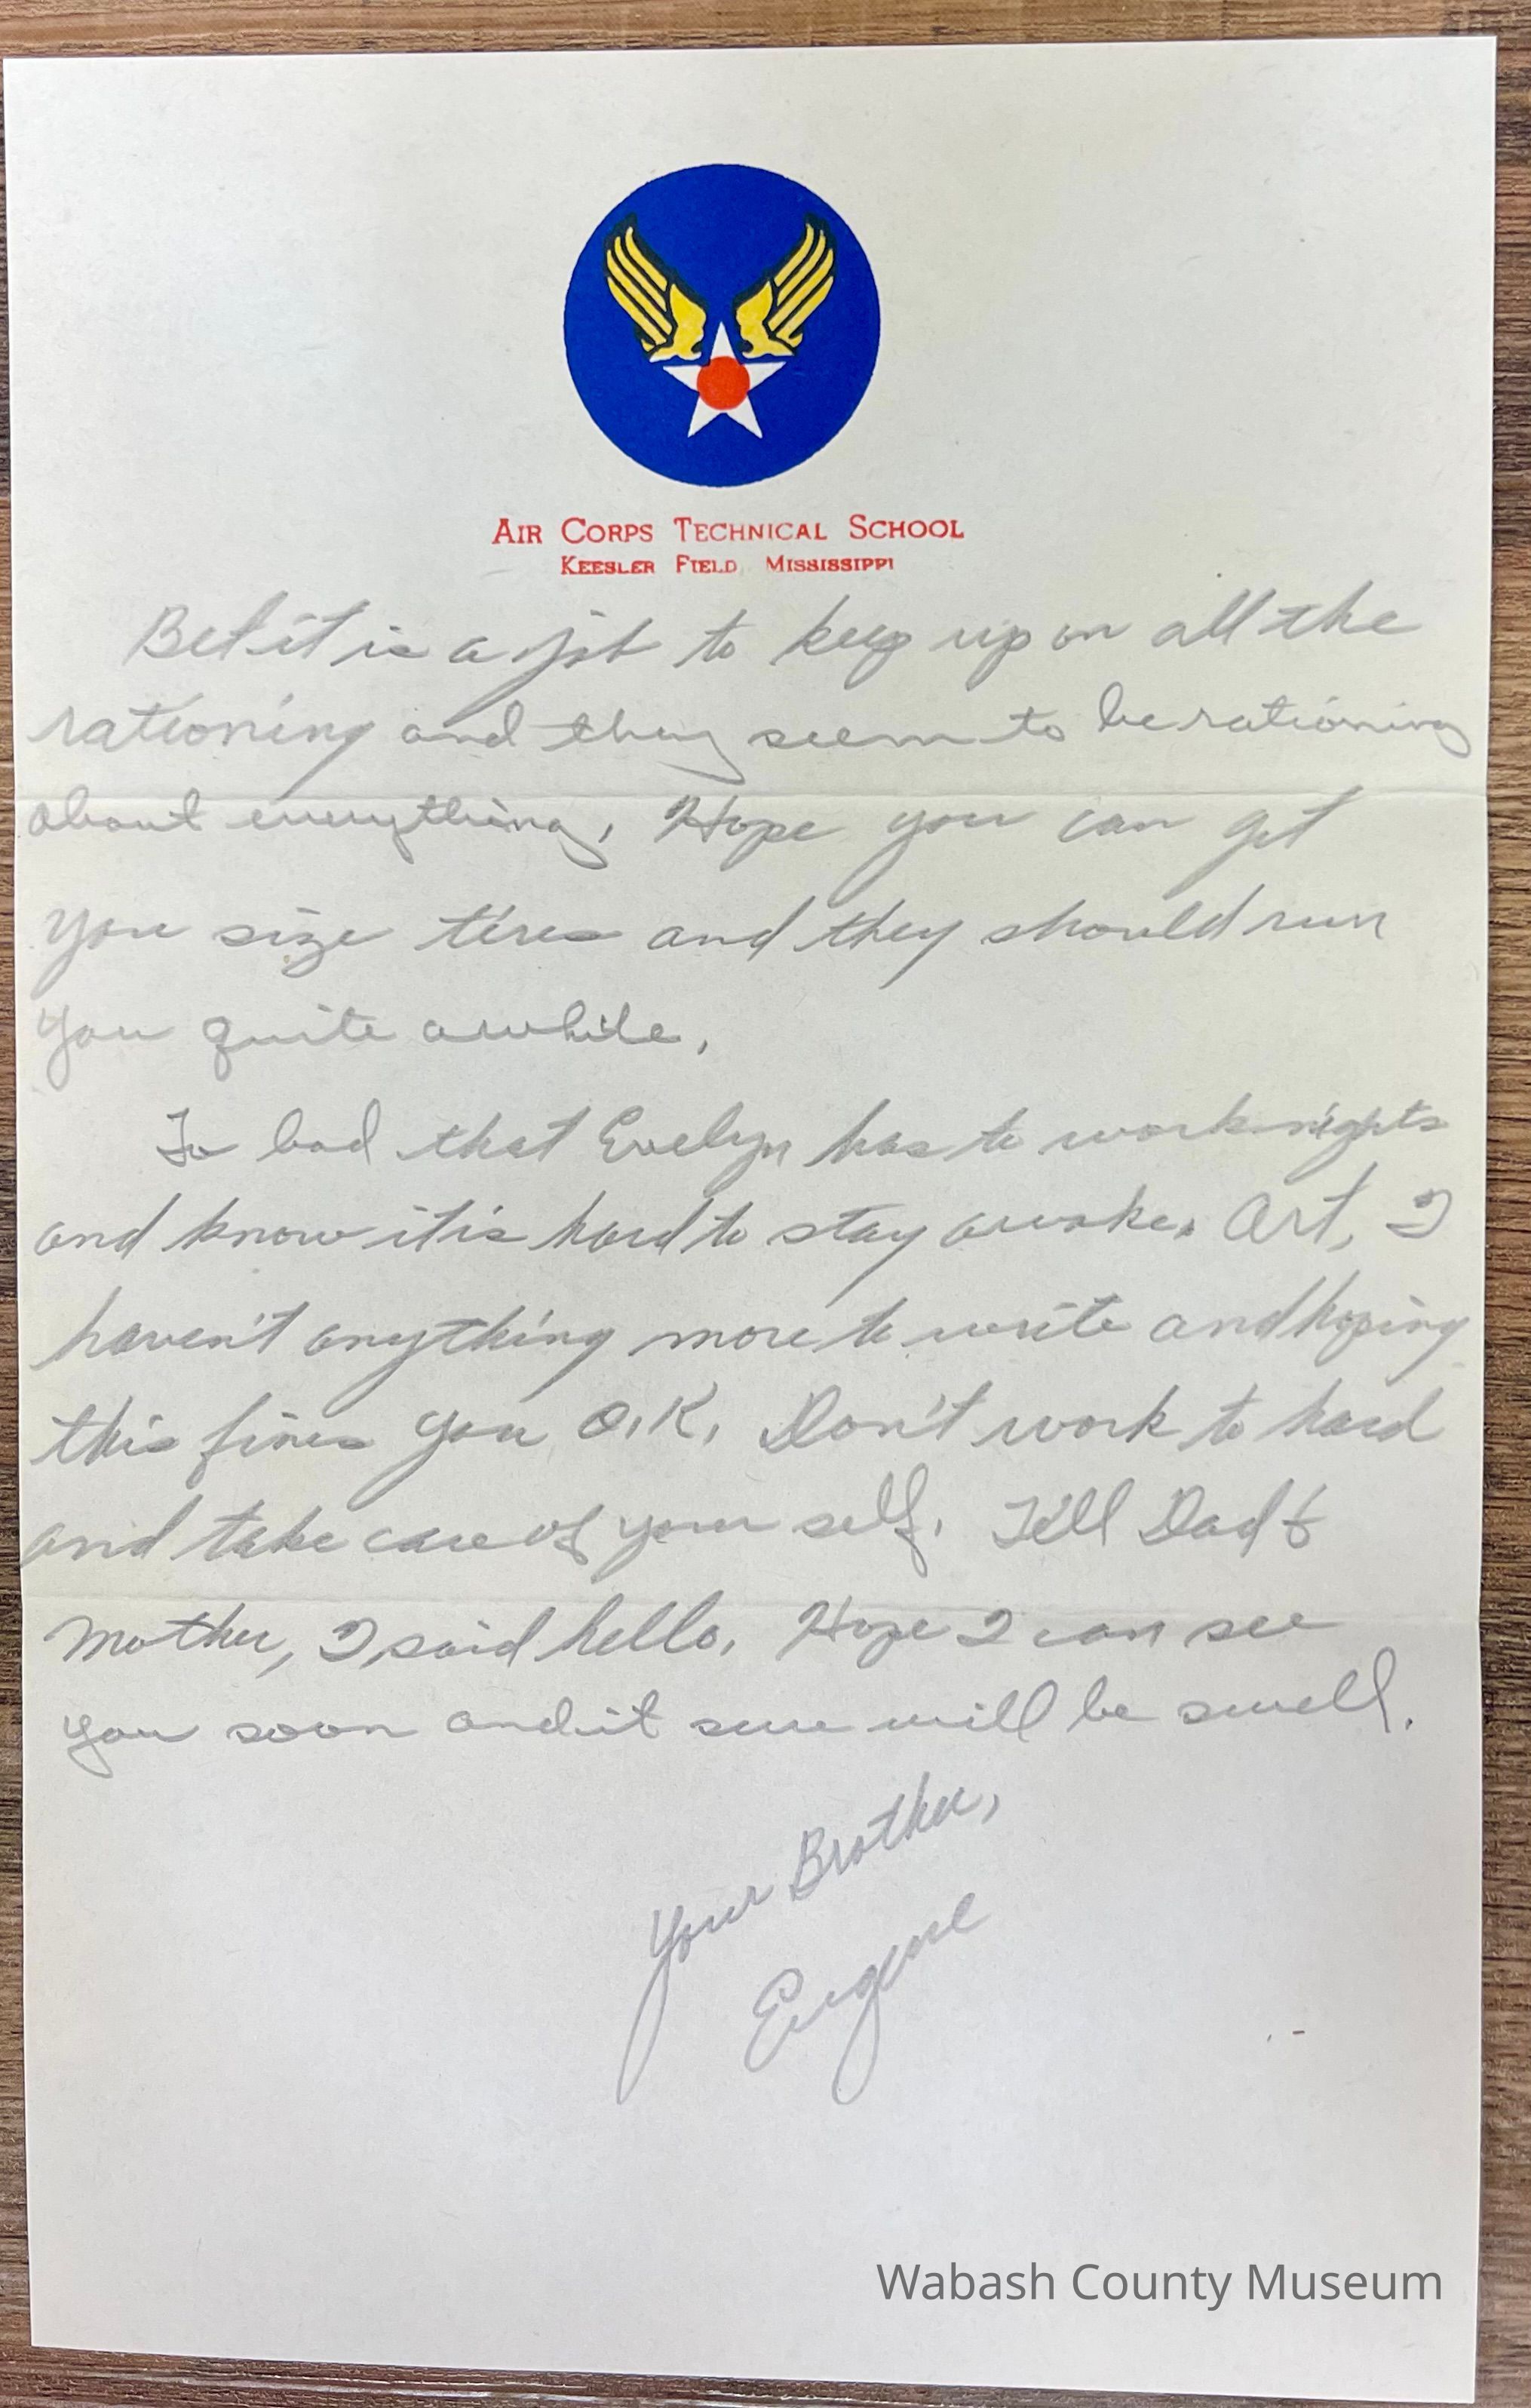 AIR CORPS TECHNICAL SCHOOL
KEESLER FIELD, MISSISSIPPI
Bet it is a job to keep up on all the
rationing and they seem to be rationing
about everything. Hope you can get
you size tires and they should run
you quite awhile.
To bad that Evelyn has to work nights
and know it is hard to stay awake. Art, I
haven't anything more to write and hoping
this fines you O.K. Don't work to hard
and take care of your self. Tell Dad &
Mother, I said hello. Hope I can see
you soon and it sure will be swell.
Your Brother,
Eugene
Wabash County Museum